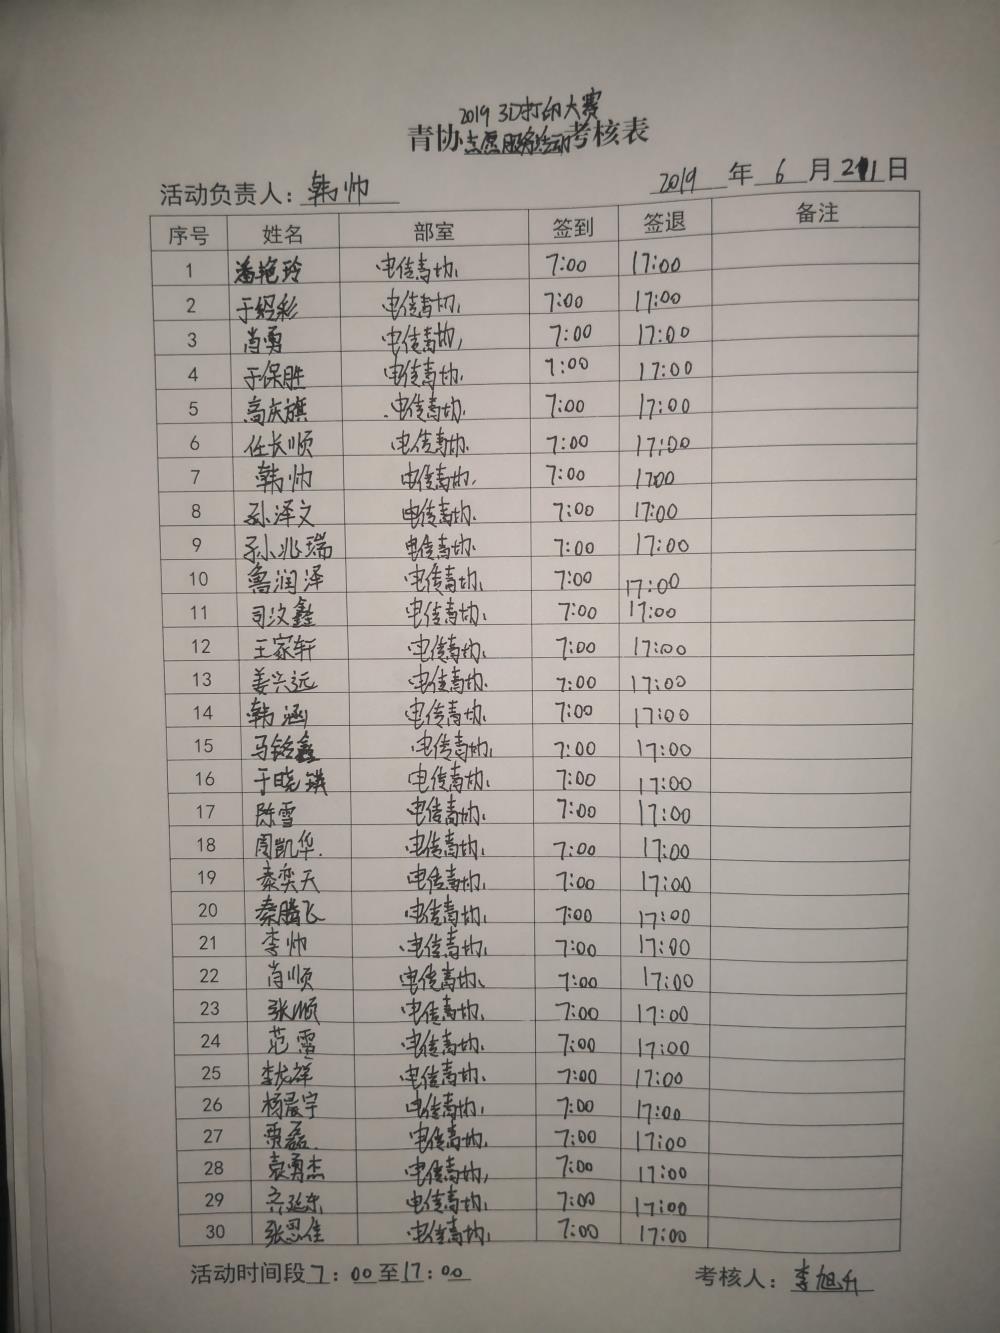 2019 3D打印大赛
青协志愿服务活动考核表
活动负责人：韩帅 2019年6月21日
序号 姓名 部室 签到 签退 备注
1 潘艳玲 电信青协 7:00 17:00
2 于绍彩 电信青协 7:00 17:00
3 肖勇 电信青协 7:00 17:00
4 于保胜 电信青协 7:00 17:00
5 高庆旗 电信青协 7:00 17:00
6 任长顺 电信青协 7:00 17:00
7 韩帅 电信青协 7:00 1700
8 孙泽文 电信青协 7:00 17:00
9 孙兆瑞 电信青协 7:00 17:00
10 鲁润泽 电信青协 7:00 17:00
11 司汶鑫 电信青协 7:00 17:00
12 王家轩 电信青协 7:00 17:00
13 姜兴远 电信青协 7:00 17:00
14 韩涵 电信青协 7:00 17:00
15 马铭鑫 电信青协 7:00 17:00
16 于晓琪 电信青协 7:00 17:00
17 陈雪 电信青协 7:00 17:00
18 周凯华 电信青协 7:00 17:00
19 秦奕天 电信青协 7:00 17:00
20 秦腾飞 电信青协 7:00 17:00
21 李帅 电信青协 7:00 17:00
22 肖顺 电信青协 7:00 17:00
23 张顺 电信青协 7:00 17:00
24 范雪 电信青协 7:00 17:00
25 李龙祥 电信青协 7:00 17:00
26 杨晨宇 电信青协 7:00 17:00
27 贾磊 电信青协 7:00 17:00
28 袁勇杰 电信青协 7:00 17:00
29 齐延东 电信青协 7:00 17:00
30 张思佳 电信青协 7:00 17:00
活动时间段7：00至17：00 考核人：李旭升